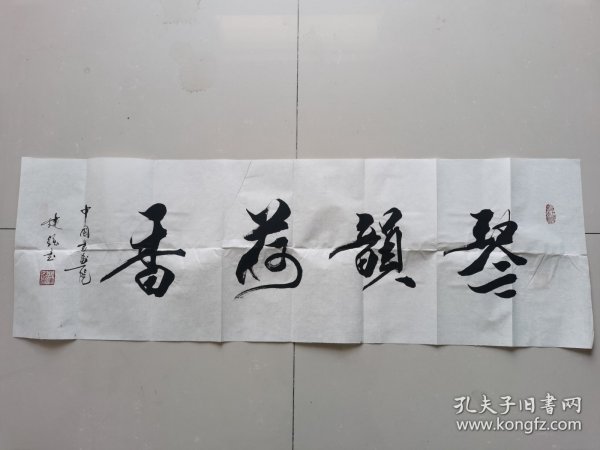 琴韻荷香
中国书画院
孔夫子旧書网
www.kongfz.com